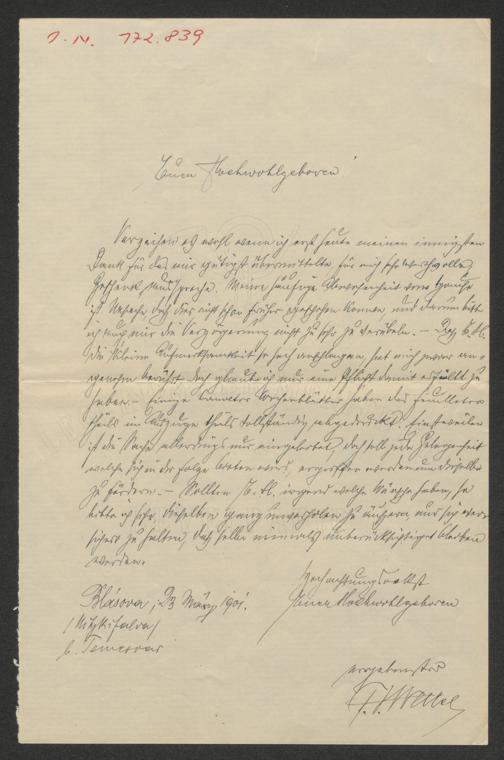 J. N. 172.839
Euer Hochwohlgeboren!
Verzeihen es wohl wenn ich erst heute meinen innigsten
Dank für das mir gütigst übermittelte für mich sehr werthvolle
Geschenk ausspreche. Meine häufige Abwesenheit vom Hause
ist Ursache daß dies nicht schon früher geschehen konnte, und darum bitte
ich mir die Verzögerung nicht zu sehr zu verübeln. — Daß E. H.
die kleine Aufmerksamkeit so hoch anschlagen, hat mich zwar an-
genehm berührt, doch glaubte ich nur eine Pflicht damit erfüllt zu
haben. — Einige Banater Wochenblätter haben das Feuilleton
theils im Auszuge theils vollständig abgedruckt. Einstweilen
ist die Sache allerdings nur eingeleitet, doch soll jede Gelegenheit
welche sich in der Folge bieten wird, ergriffen werden um dieselbe
zu fördern. — Sollten E. H. irgend welche Wünsche haben, so
bitte ich sehr dieselben ganz unverholen zu äußern und sich ver-
sichert zu halten, daß selbe niemals unberücksichtiget bleiben
werden.
Hochachtungsvollst
Euer Hochwohlgeboren
Blásova, 23 März 1901.
/Nitzkifalva/
b. Temesvar
ergebenster
F. Wettel